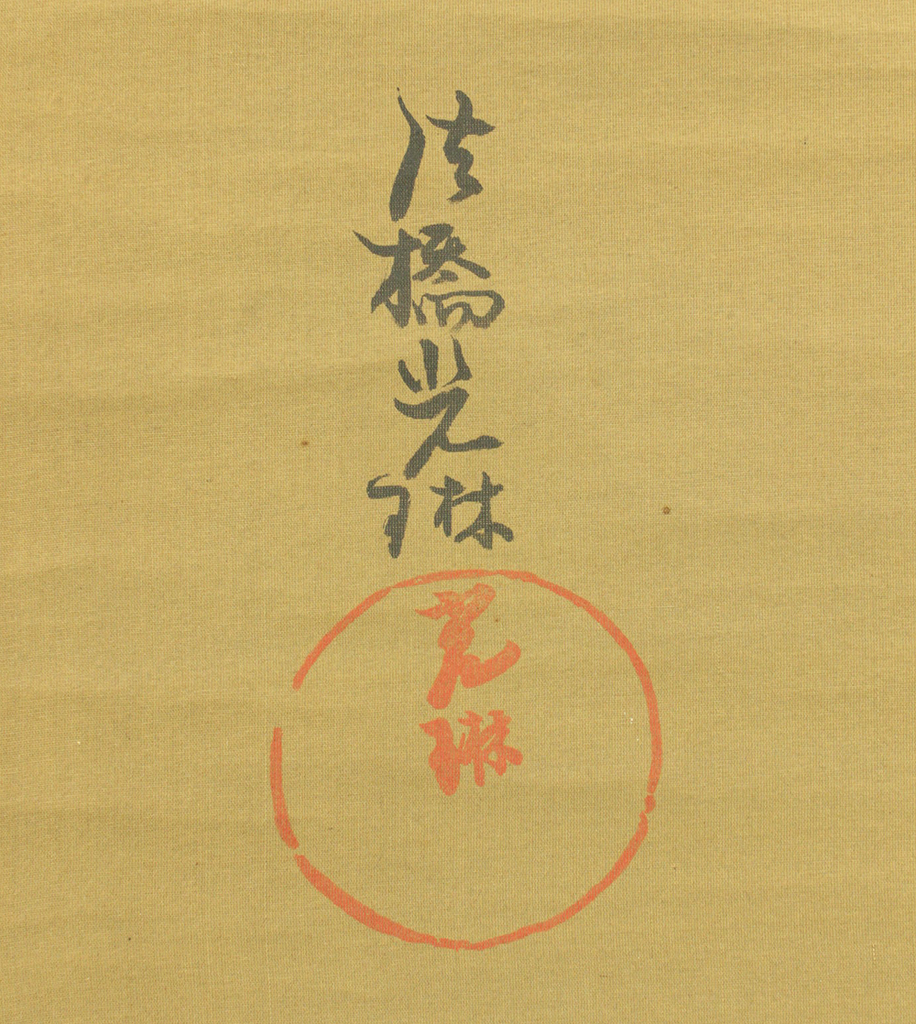 法橋光琳
光琳